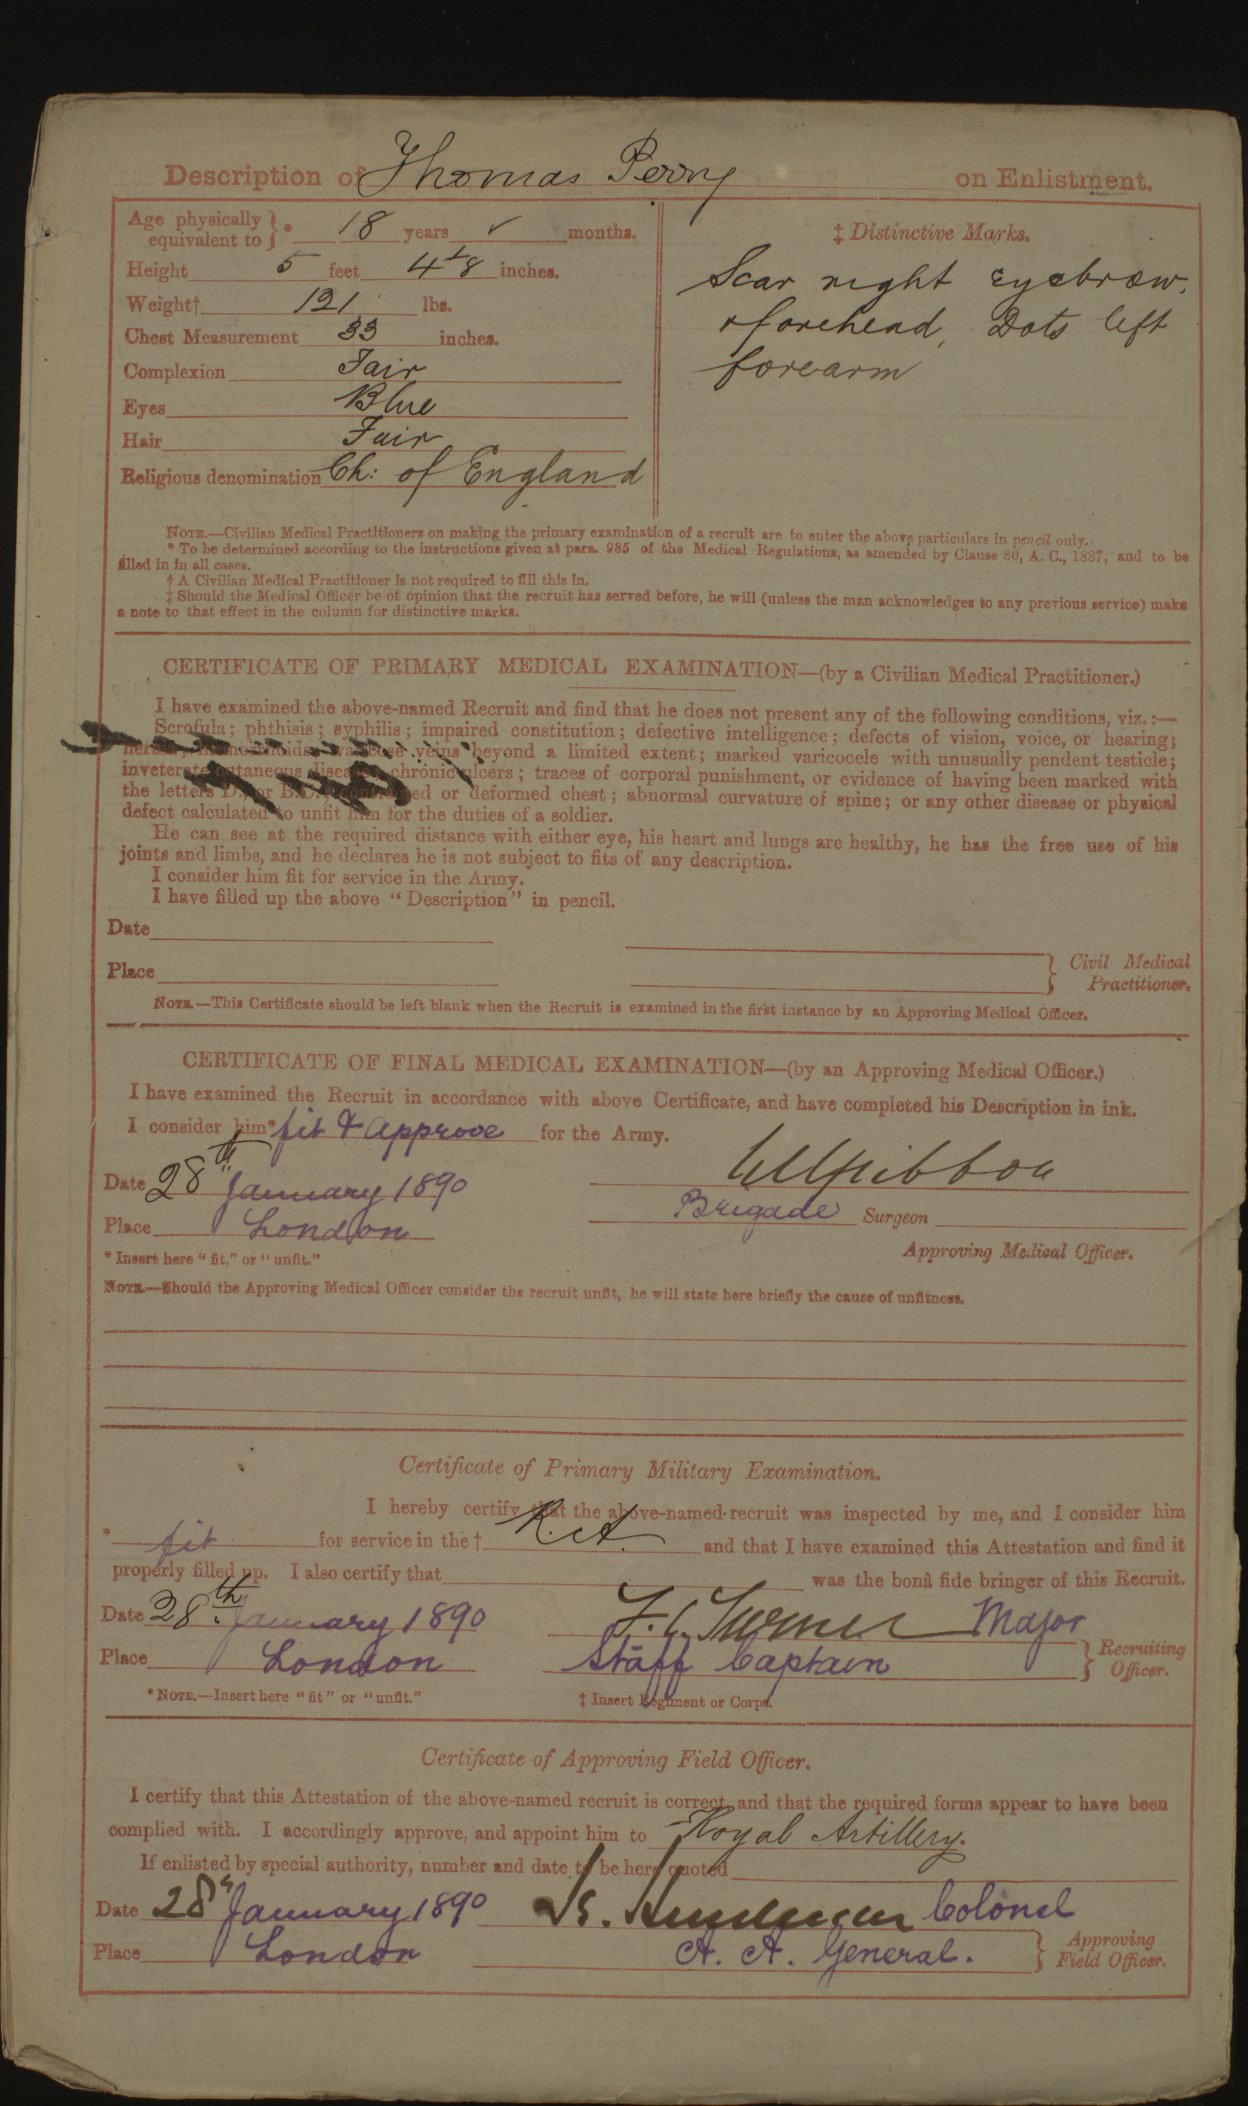 Description of Thomas Perry on Enlistment.
Age physically equivalent to }* 18 years ✓ months.
Height 5 feet 4 1/8 inches.
Weight† 121 lbs.
Chest Measurement 33 inches.
Complexion Fair
Eyes Blue
Hair Fair
Religious denomination Ch: of England
‡ Distinctive Marks.
Scar right eyebrow.
& forehead, Dots left
forearm
NOTE.—Civilian Medical Practitioners on making the primary examination of a recruit are to enter the above particulars in pencil only.
* To be determined according to the instructions given at para. 985 of the Medical Regulations, as amended by Clause 80, A. C., 1887, and to be
filled in in all cases.
† A Civilian Medical Practitioner is not required to fill this in.
‡ Should the Medical Officer be of opinion that the recruit has served before, he will (unless the man acknowledges to any previous service) make
a note to that effect in the column for distinctive marks.
CERTIFICATE OF PRIMARY MEDICAL EXAMINATION—(by a Civilian Medical Practitioner.)
I have examined the above-named Recruit and find that he does not present any of the following conditions, viz.:—
Scrofula; phthisis; syphilis; impaired constitution; defective intelligence; defects of vision, voice, or hearing;
veins beyond a limited extent; marked varicocele with unusually pendent testicle;
inveterate cutaneous disease; chronic ulcers; traces of corporal punishment, or evidence of having been marked with
the letters D., or B.C.; contracted or deformed chest; abnormal curvature of spine; or any other disease or physical
defect calculated to unfit him for the duties of a soldier.
He can see at the required distance with either eye, his heart and lungs are healthy, he has the free use of his
joints and limbs, and he declares he is not subject to fits of any description.
I consider him fit for service in the Army.
I have filled up the above "Description" in pencil.
Date
Place
Civil Medical
Practitioner.
NOTE.—This Certificate should be left blank when the Recruit is examined in the first instance by an Approving Medical Officer.
CERTIFICATE OF FINAL MEDICAL EXAMINATION—(by an Approving Medical Officer.)
I have examined the Recruit in accordance with above Certificate, and have completed his Description in ink.
I consider him* fit & approve for the Army.
Date 28th January 1890
Gibbon
Place London
Brigade Surgeon
Approving Medical Officer.
* Insert here "fit," or "unfit."
NOTE.—Should the Approving Medical Officer consider the recruit unfit, he will state here briefly the cause of unfitness.
Certificate of Primary Military Examination.
I hereby certify that the above-named recruit was inspected by me, and I consider him
* fit for service in the † R.A. and that I have examined this Attestation and find it
properly filled up. I also certify that was the bonâ fide bringer of this Recruit.
Date 28th January 1890 F. C. Turner Major
Place London Staff Captain
Recruiting
Officer.
* NOTE.—Insert here "fit" or "unfit."
‡ Insert Regiment or Corps.
Certificate of Approving Field Officer.
I certify that this Attestation of the above-named recruit is correct, and that the required forms appear to have been
complied with. I accordingly approve, and appoint him to Royal Artillery.
If enlisted by special authority, number and date to be here quoted
Date 28th January 1890 Colonel
Place London A. A. General.
Approving
Field Officer.